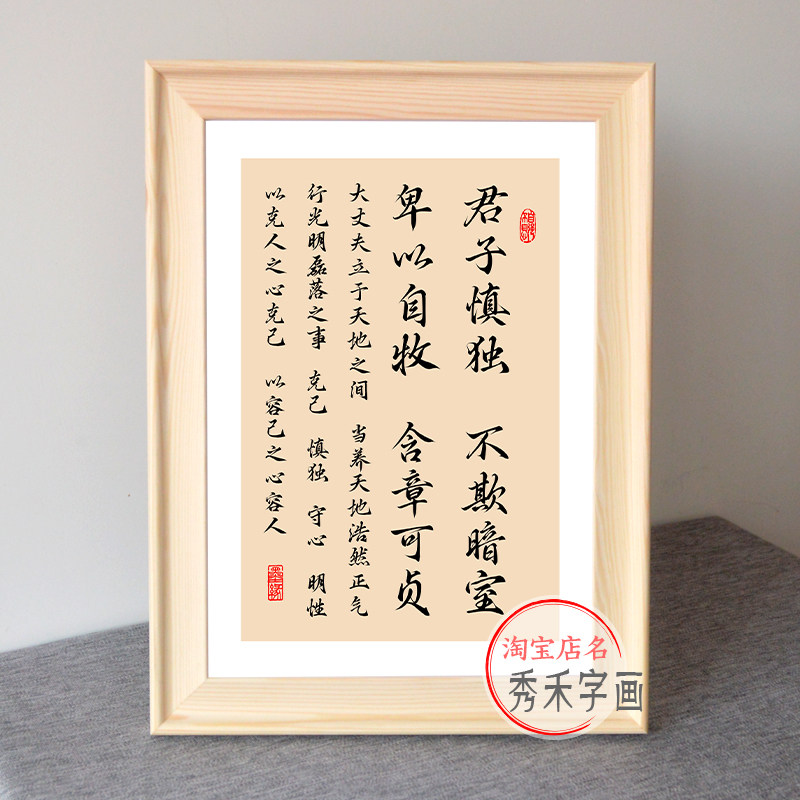 君子慎独 不欺暗室
卑以自牧 含章可贞
大丈夫立于天地之间 当养天地浩然正气
行光明磊落之事 克己 慎独 守心 明性
以克人之心克己 以容己之心容人
淘宝店名
秀禾字画